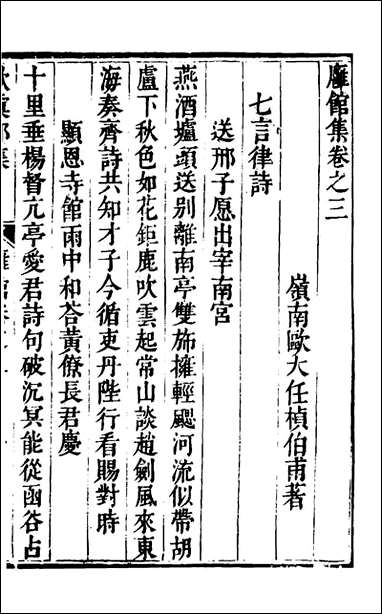 雍館集卷之三
嶺南歐大任楨伯甫著
七言律詩
送邢子愿出宰南宮
燕酒壚頭送别離南亭雙斾擁輕颸河流似帶胡
盧下秋色如花鉅鹿吹雲起常山談趙劍風來東
海奏齊詩共知才子今循吏丹陛行看賜對時
顯恩寺館雨中和荅黃僚長君慶
十里垂楊督亢亭愛君詩句破沉冥能從函谷占